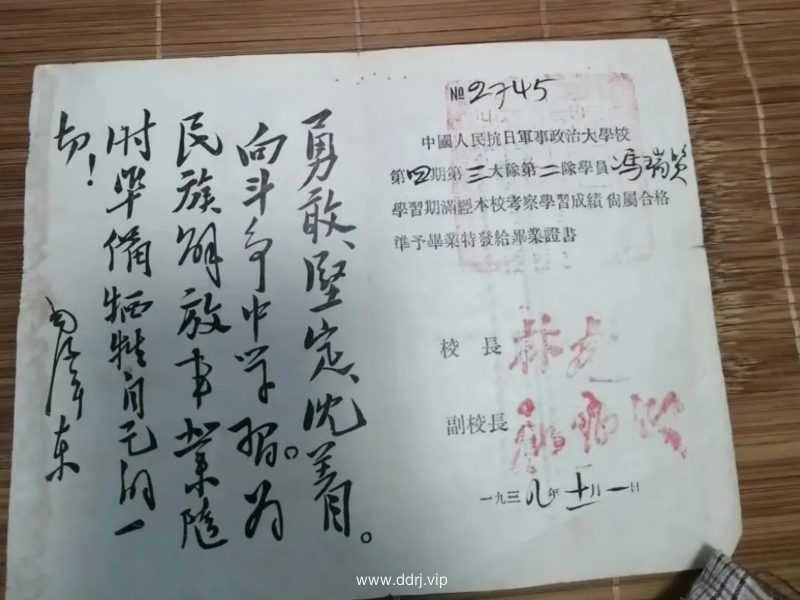 勇敢、堅定、沈着。
向斗争中学習。为
民族解放事業隨
时準備牺牲自己的一
切！
毛泽东
№2745
中國人民抗日軍事政治大學校
第四期第三大隊第二隊學員馮瑞
學習期滿經本校考察學習成績尙屬合格
準予畢業特發給畢業證書
校長 林彪
副校長 羅瑞卿
一九三八年十一月一日
www.ddrj.vip